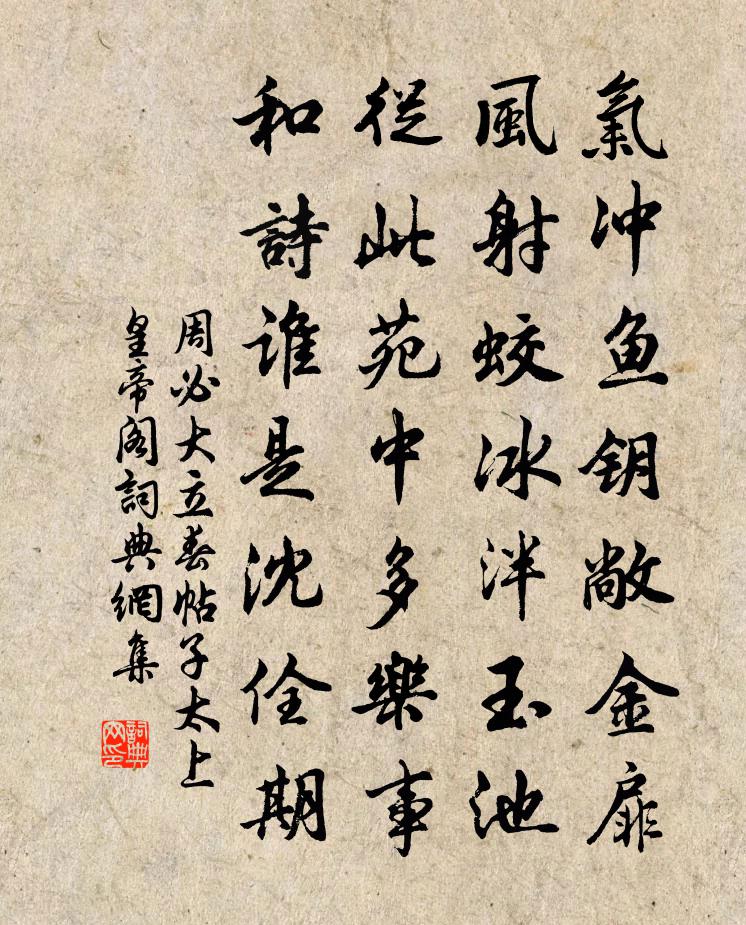 氣冲魚钥敞金扉
風射蛟冰泮玉池
從此苑中多樂事
和詩誰是沈佺期
周必大立春帖子太上
皇帝阁詞典網集
詞典网印